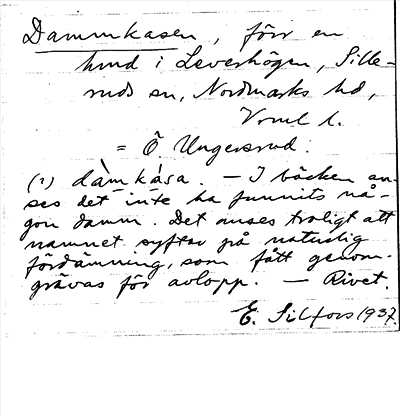 Dammkasen, förr en
hmd i Leverhögen, Sille-
ruds sn, Nordmarks hd,
Vrml l.
= Ö Ungersrud.
(1) dàm kása. — I bäcken an-
ses det inte ha funnits nå-
gon damm. Det anses troligt att
namnet syftar på naturlig
fördämning, som fått genom-
grävas för avlopp. — Rivet.
E. Silfors 1937.